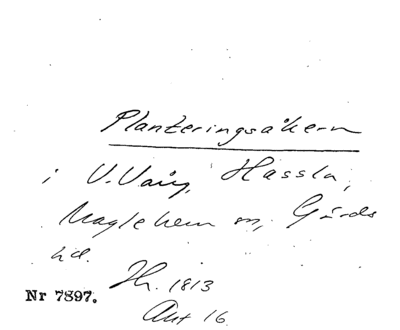 Planteringsåkern
i V. Vång, Hässla,
Maglehem sn, Gärds
hd.
Nr 7897.
Jh. 1813
Akt 16